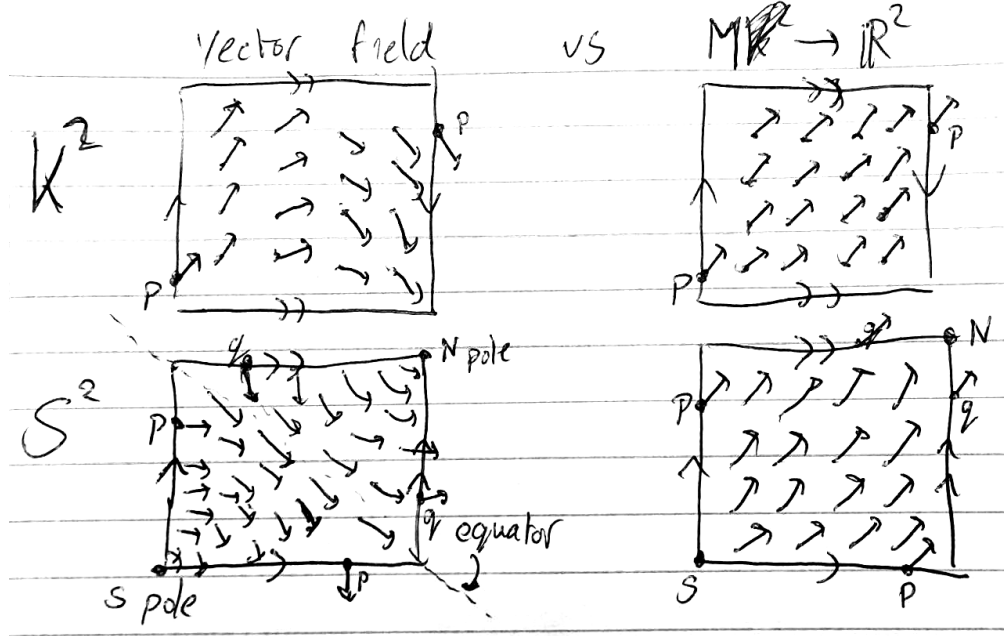 Vector field vs M → ℝ²
K²
P
P
P
P
S²
q
N pole
P
q equator
S pole
P
q
N
P
q
S
P